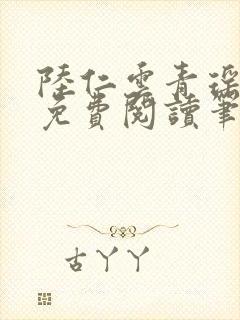 陸仁雲青瑤
免費閱讀筆
古丫丫